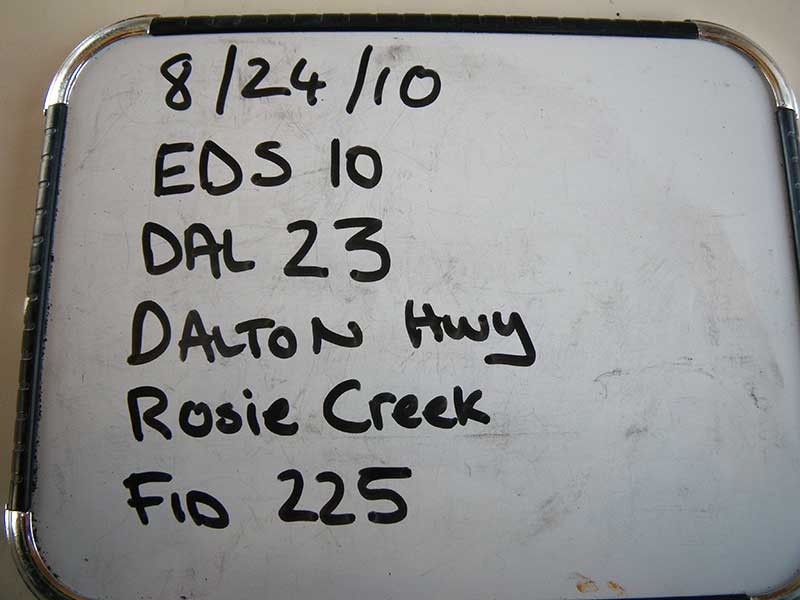 8/24/10
EDS 10
DAL 23
DALTON Hwy
Rosie Creek
FID 225